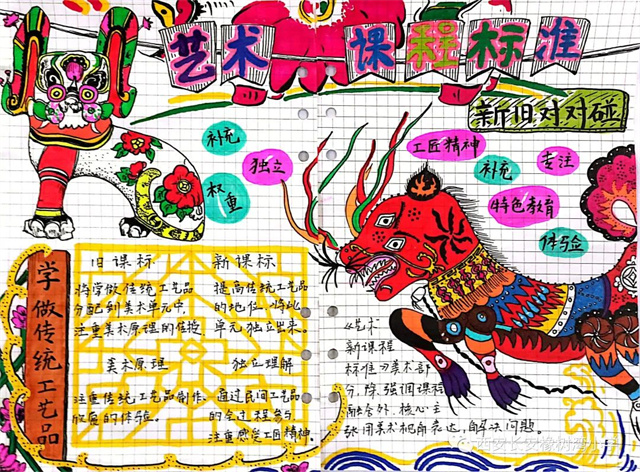 艺术 课程标准
新旧对对碰
补充
独立
权重
工匠精神
补充
专注
特色教育
体验
学做传统工艺品
旧课标
将学做传统工艺品
分配到美术单元中,
注重美术原理的传授
美术原理
注重传统工艺品制作、
欣赏的体验。
新课标
提高传统工艺品
的地位,将此
单元独立出来。
独立理解
通过民间工艺品
的全过程参与
注重感受工匠精神.
《艺术
新课程
标准》美术部
分,除,强调课程
融合外,核心主
张用美术视角表达,解决问题。